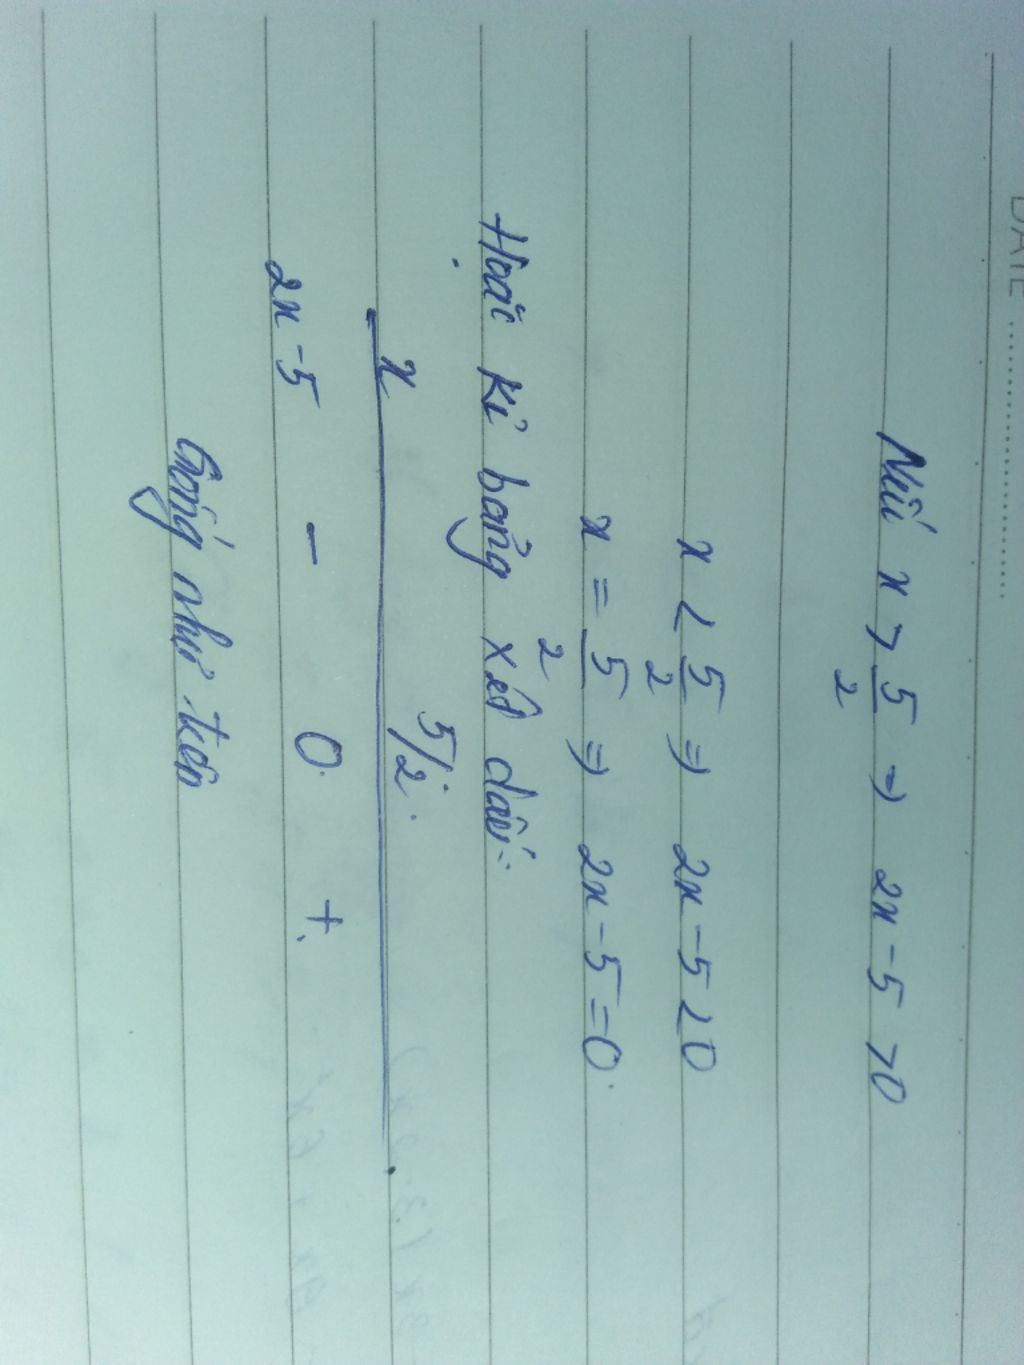 DATE ........................
Nếu x > 5/2 => 2x - 5 > 0
x < 5/2 => 2x - 5 < 0
x = 5/2 => 2x - 5 = 0.
Hoặc kẻ bảng xét dấu:
x 5/2.
2x - 5 - 0. +.
Giống như trên